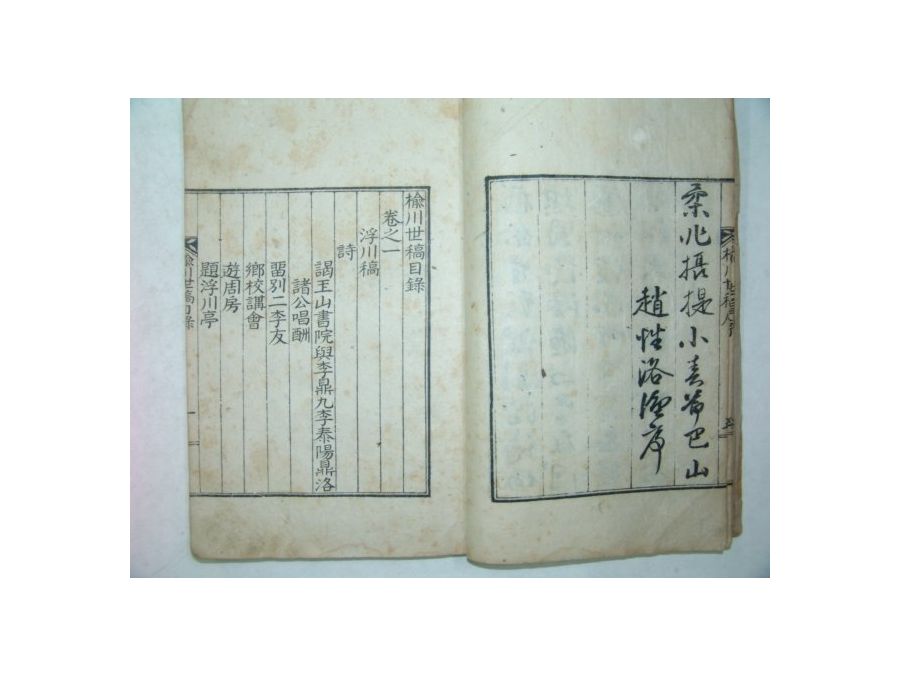 柔兆攝提小春節巴山
趙性洛謹序
楡川世稿目錄
卷之一
浮川稿
詩
謁王山書院與李鼎九李泰陽鼎洛
諸公唱酬
留別二李友
鄉校講會
遊周房
題浮川亭
楡川世稿目錄
一